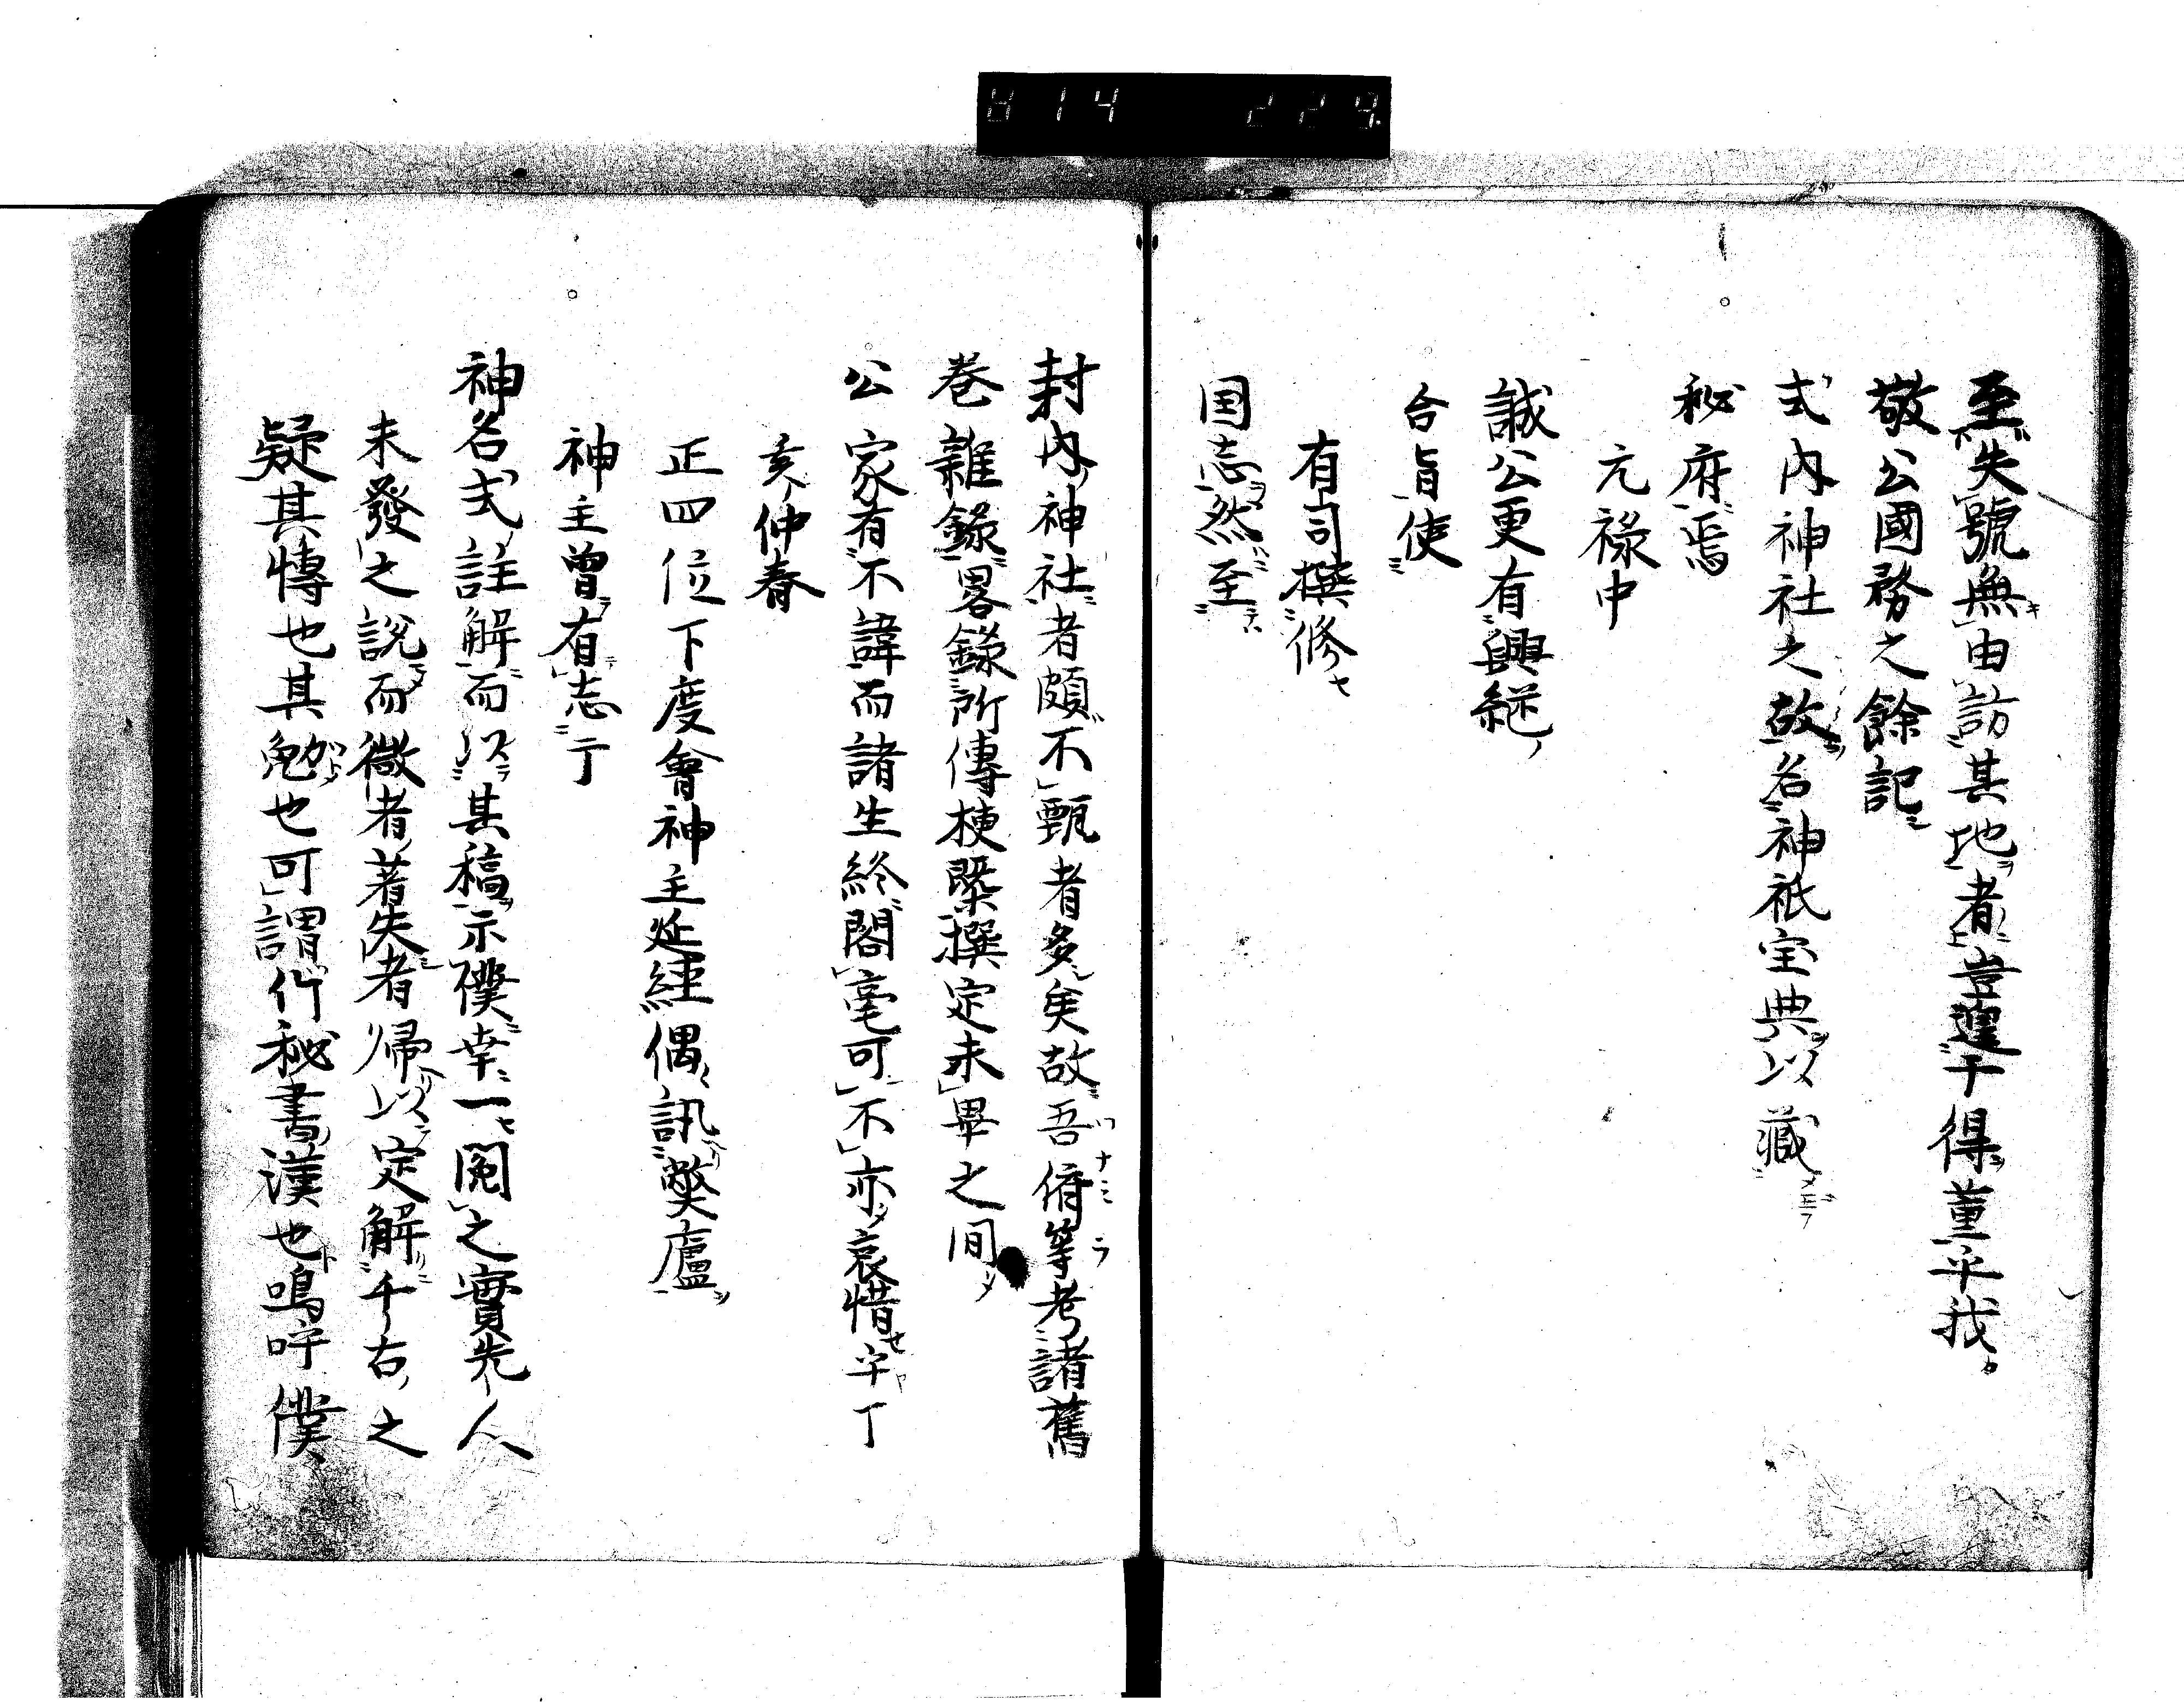 814 229
至失號無由訪其地者豈遑于得董乎哉
敬公國務之餘記
式内神社之故名神祇宝典以蔵
秘府焉
元禄中
誠公更有興継
合旨使
有司撰修
国志然至
封内神社者頗不甄者多矣故吾儕等考諸舊
巻雜録畧録所傳梗槩撰定未畢之間
公家有不諱而諸生終閣毫可不亦哀惜乎丁
亥仲春
正四位下度會神主延経偶訊弊廬
神主曽有志于
神名式註解而以其稿示僕幸一閲之實先人
未發之説而徴者著失者帰以定解千古之
疑其博也其勉也可謂行秘書漢也嗚呼僕